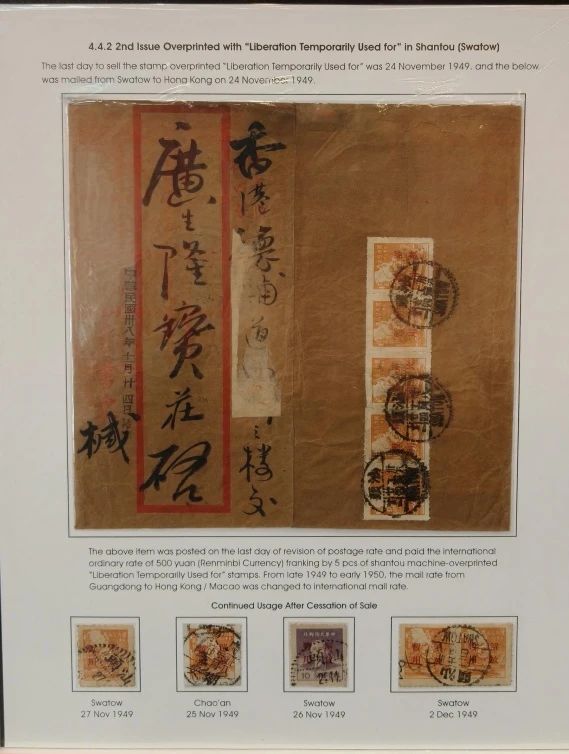 4.4.2 2nd Issue Overprinted with "Liberation Temporarily Used for" in Shantou (Swatow)
The last day to sell the stamp overprinted "Liberation Temporarily Used for" was 24 November 1949, and the below
was mailed from Swatow to Hong Kong on 24 November 1949.
香港德輔道
之樓交
廣生隆寶莊啓
中華民國卅八年十一月廿四日
械
The above item was posted on the last day of revision of postage rate and paid the international
ordinary rate of 500 yuan (Renminbi Currency) franking by 5 pcs of shantou machine-overprinted
"Liberation Temporarily Used for" stamps. From late 1949 to early 1950, the mail rate from
Guangdong to Hong Kong / Macao was changed to international mail rate.
Continued Usage After Cessation of Sale
10
Swatow
27 Nov 1949
Chao'an
25 Nov 1949
Swatow
26 Nov 1949
Swatow
2 Dec 1949